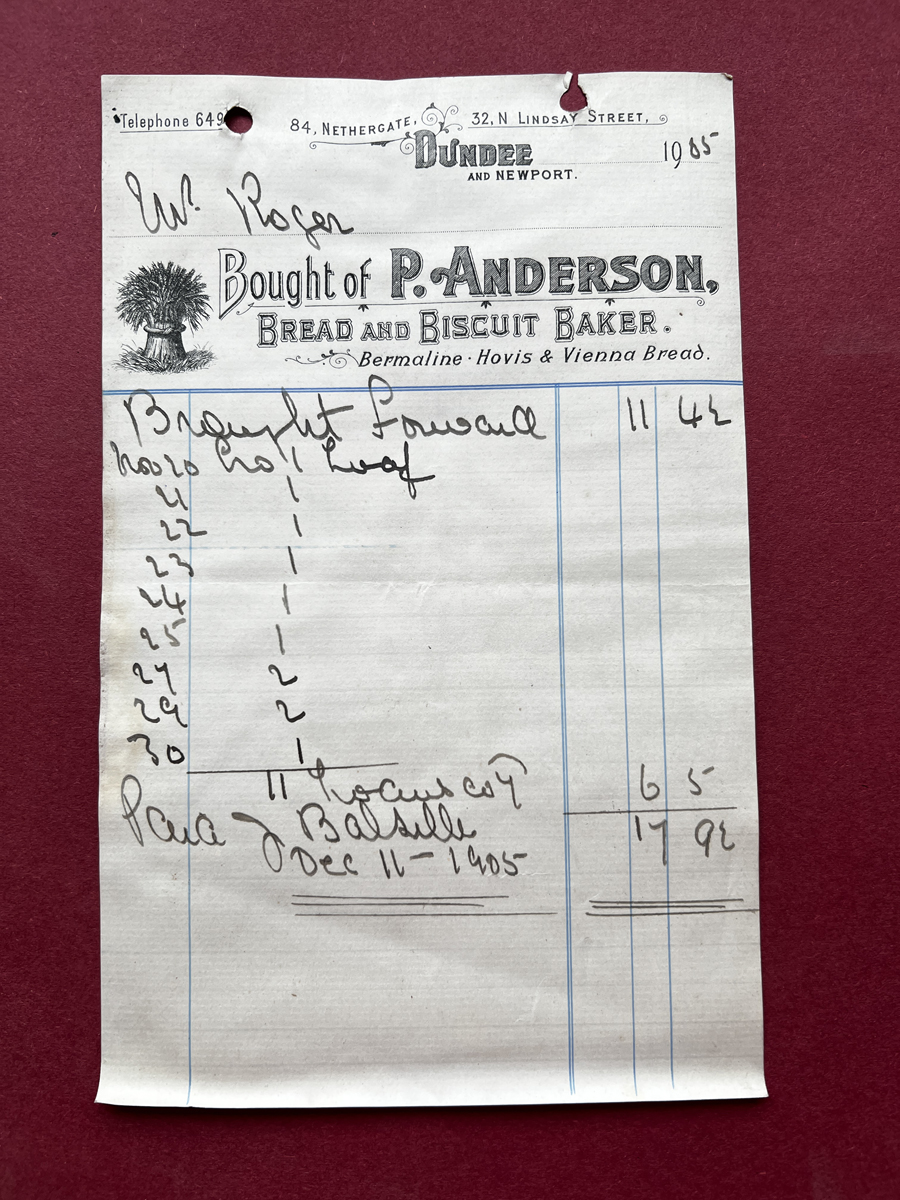 Telephone 649
84, NETHERGATE, 32, N LINDSAY STREET,
DUNDEE
AND NEWPORT.
1905
Mr. Roger
Bought of P. ANDERSON,
BREAD AND BISCUIT BAKER.
Bermaline · Hovis & Vienna Bread.
Brought Forward 11 4½
Nov 20 1 Loaf
21 1
22 1
23 1
24 1
25 1
27 2
29 2
30 1
11 Loaves @ 7 6 5
Paid J Balsillie 17 9½
Dec 11 - 1905